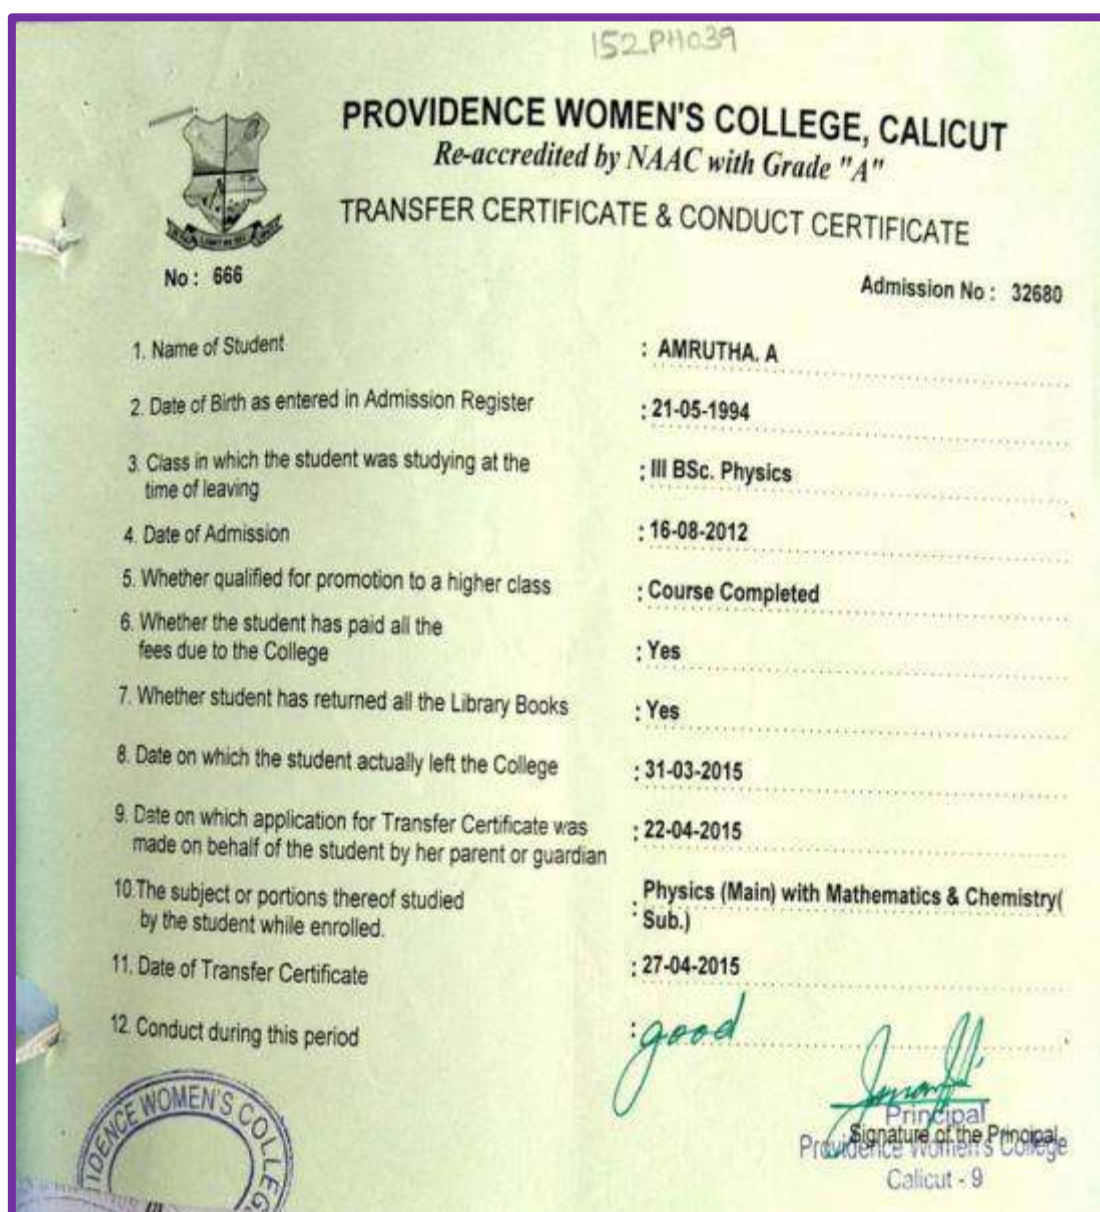 152PH039
PROVIDENCE WOMEN'S COLLEGE, CALICUT
Re-accredited by NAAC with Grade "A"
TRANSFER CERTIFICATE & CONDUCT CERTIFICATE
No : 666
Admission No : 32680
1. Name of Student : AMRUTHA. A
2. Date of Birth as entered in Admission Register : 21-05-1994
3. Class in which the student was studying at the
time of leaving : III BSc. Physics
4. Date of Admission : 16-08-2012
5. Whether qualified for promotion to a higher class : Course Completed
6. Whether the student has paid all the
fees due to the College : Yes
7. Whether student has returned all the Library Books : Yes
8. Date on which the student actually left the College : 31-03-2015
9. Date on which application for Transfer Certificate was : 22-04-2015
made on behalf of the student by her parent or guardian
10.The subject or portions thereof studied : Physics (Main) with Mathematics & Chemistry(
by the student while enrolled. Sub.)
11. Date of Transfer Certificate : 27-04-2015
12. Conduct during this period : good
Principal
Signature of the Principal
Providence Women's College
Calicut - 9
IDENCE WOMEN'S COLLEG